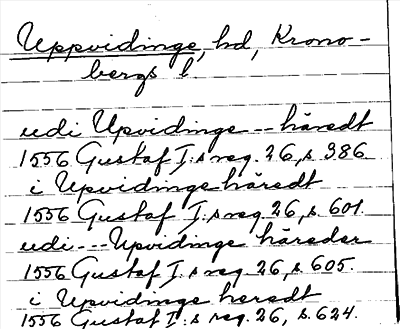 Uppvidinge, hd, Krono-
bergs l.
udi Upvidinge -- häredt
1556 Gustaf I:s reg. 26, s. 386.
i Upvidinge häredt
1556 Gustaf I:s reg. 26, s. 601.
udi --- Upvidinge häreder
1556 Gustaf I:s reg. 26, s. 605.
i Upvidinge heredt
1556 Gustaf I:s reg. 26, s. 624.